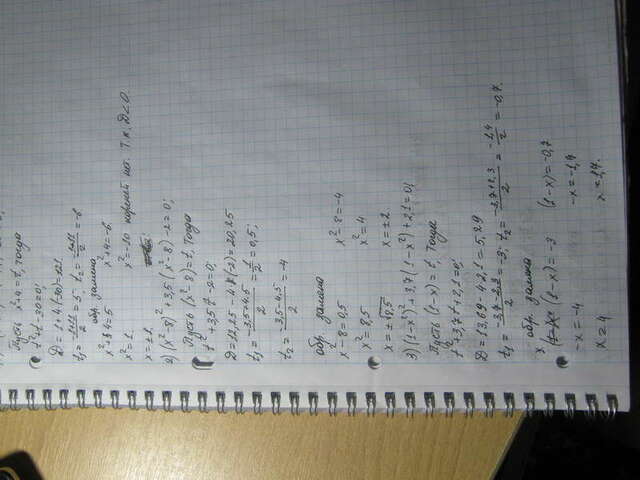 Пусть x²+4=t, тогда
t²+t-30=0;
D=1+4·(-30)=121.
t₁= = 5 t₂= = -6
обр. замена
x²+4=5 x²+4=-6
x²=1 x²=-10 корней нет. т.к. D<0.
x=±1.
2) (x²-8)²+3,5(x²-8)-2=0;
Пусть (x²-8)=t, тогда
t²+3,5t-2=0;
D=12,25-4·1·(-2)=20,25
t₁= -3,5+4,5/2 = 1/2 = 0,5;
t₂= -3,5-4,5/2 = -4
обр. замена
x²-8=0,5 x²-8=-4
x²=8,5 x²=4
x=±√8,5 x=±2.
3) (1-x²)²+3,7(1-x²)+2,1=0;
Пусть (1-x)=t, тогда
t²+3,7t+2,1=0;
D=13,69-4·2,1=5,29
t₁= -3,7-2,3/2 = -3; t₂= -3,7+2,3/2 = -1,4/2 = -0,7.
обр. замена
(1-x)=-3 (1-x)=-0,7
-x=-4 -x=-1,7
x=4 x=1,7.